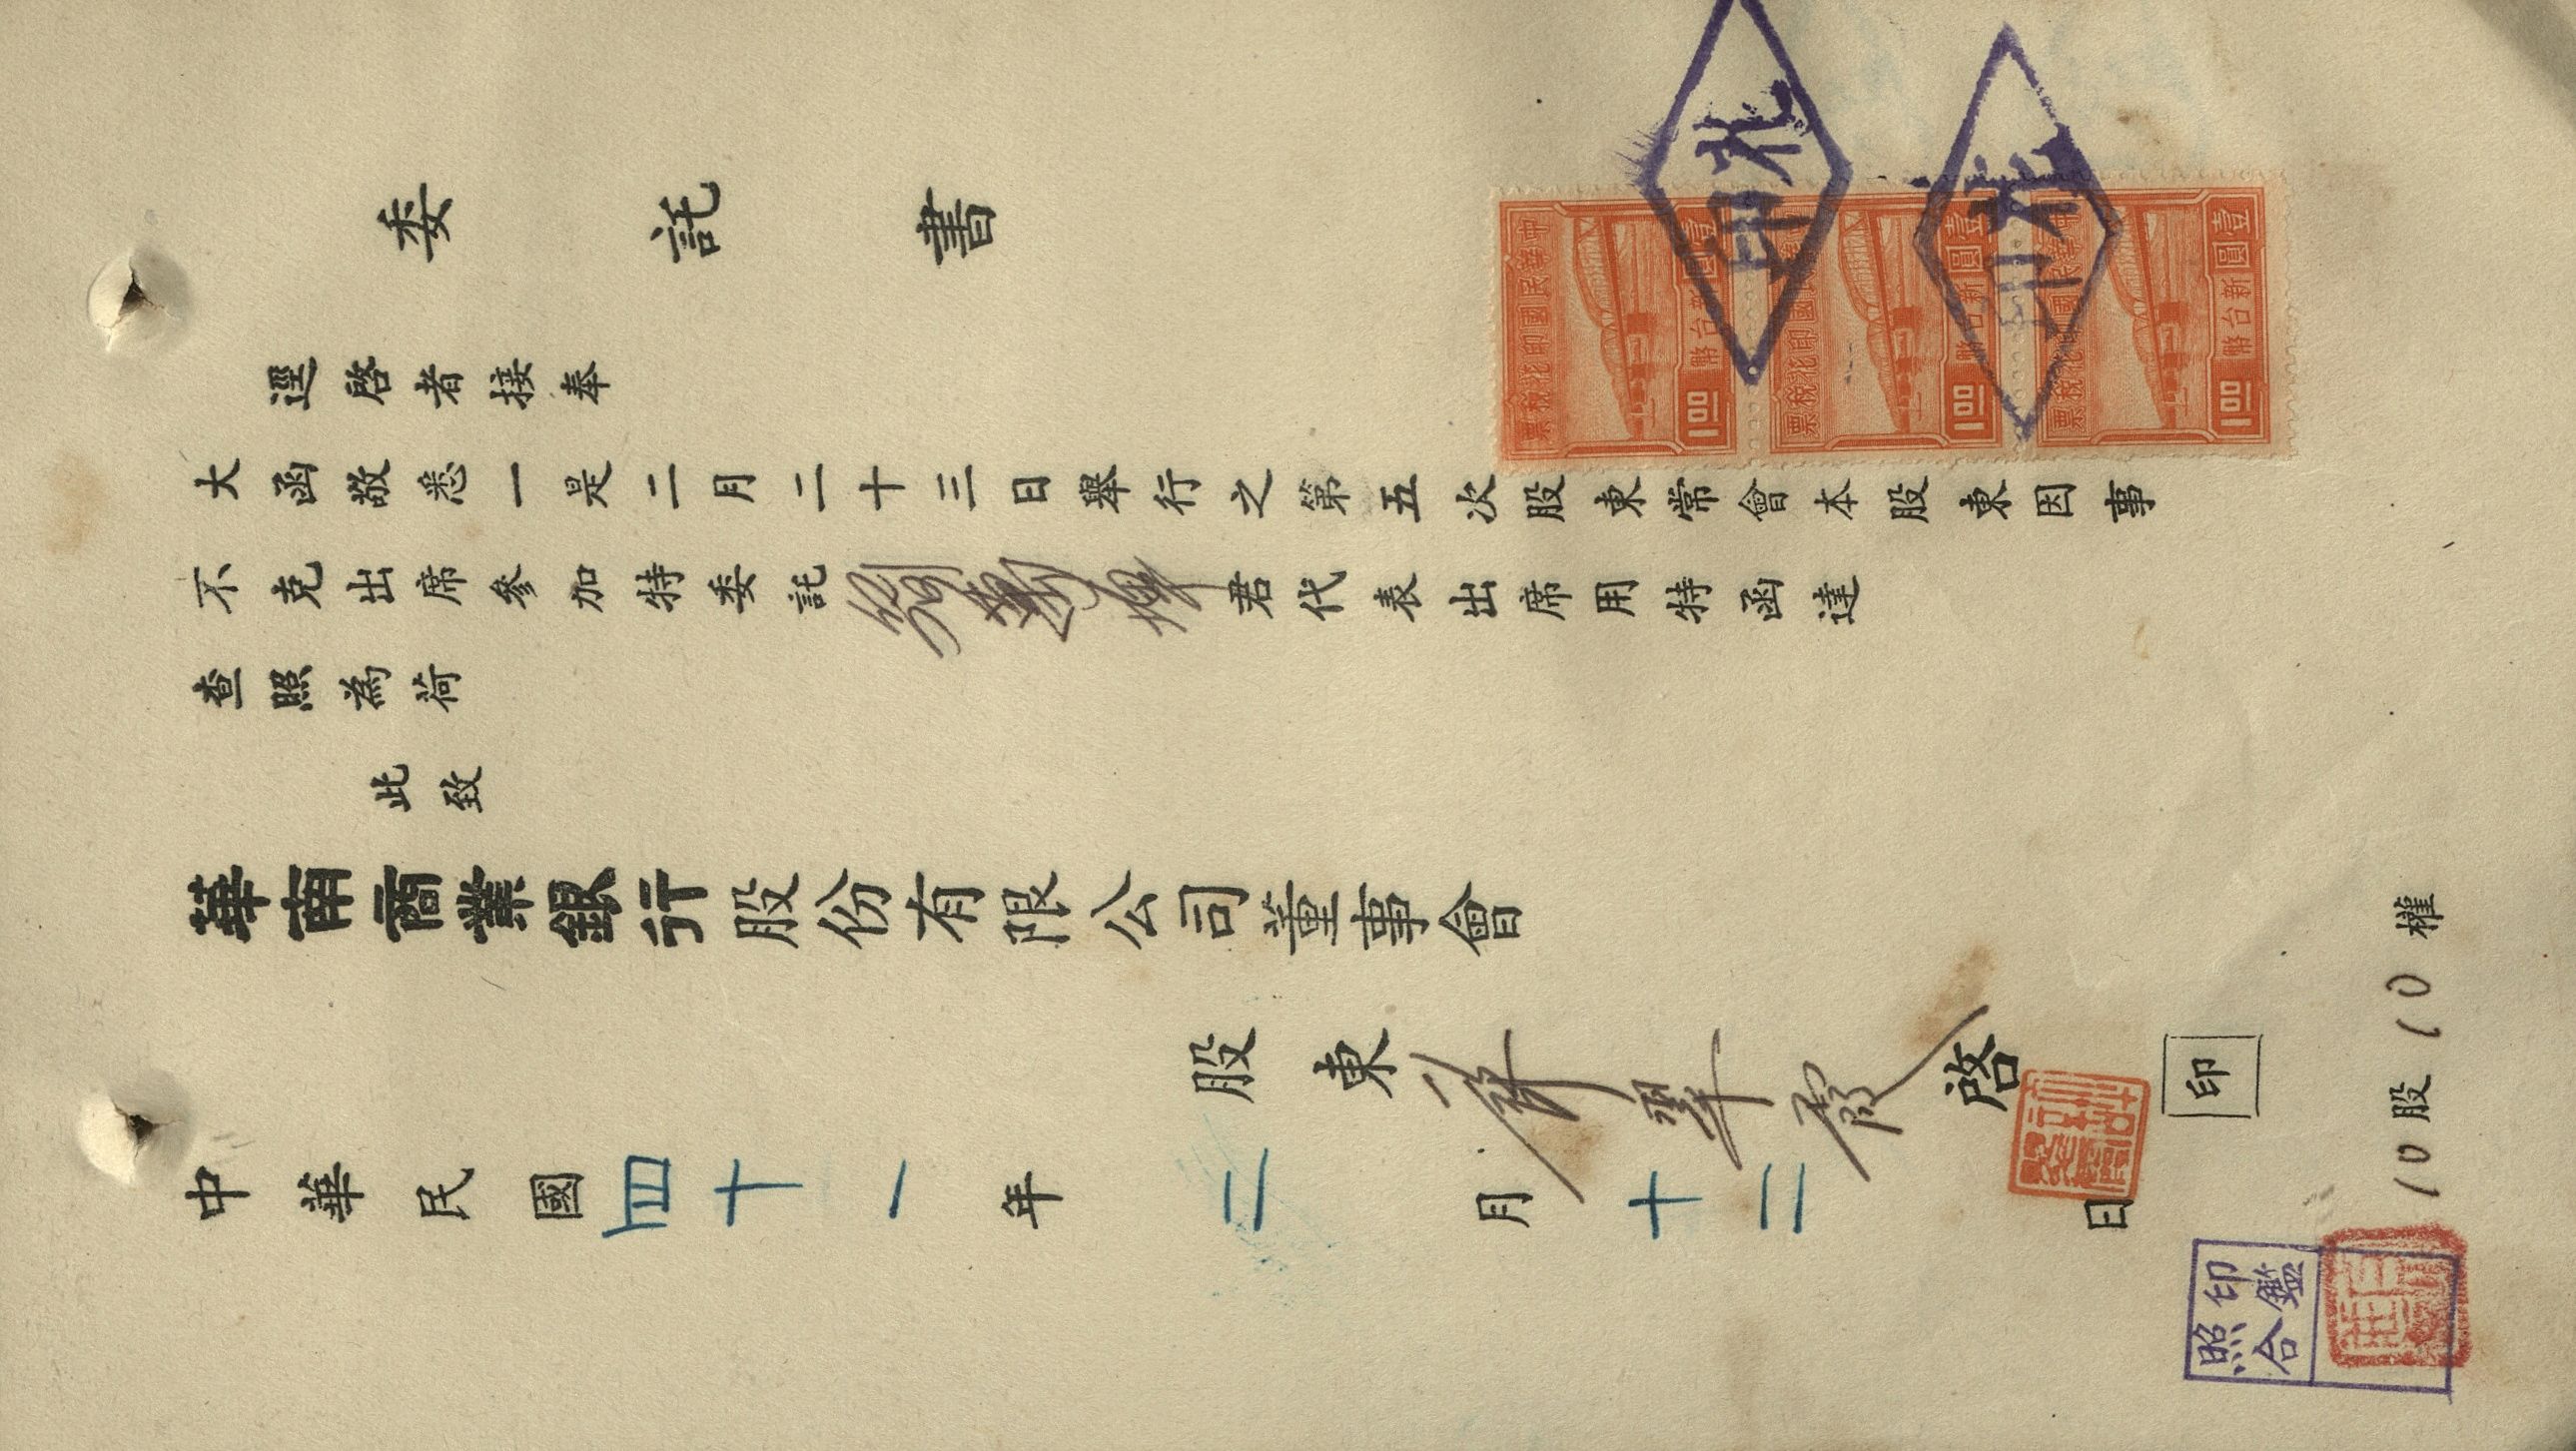 委託書
逕啓者接奉
大函敬悉一是二月二十三日舉行之第五次股東常會本股東因事
不克出席參加特委託劉萬君代表出席用特函達
查照為荷
此致
華南商業銀行股份有限公司董事會
股東啓
印
中華民國四十一年二月十二日
10股10權
印鑑
照合
中華民國印花稅票
壹圓
新台幣
1.00
中華民國印花稅票
壹圓
新台幣
1.00
中華民國印花稅票
壹圓
新台幣
1.00